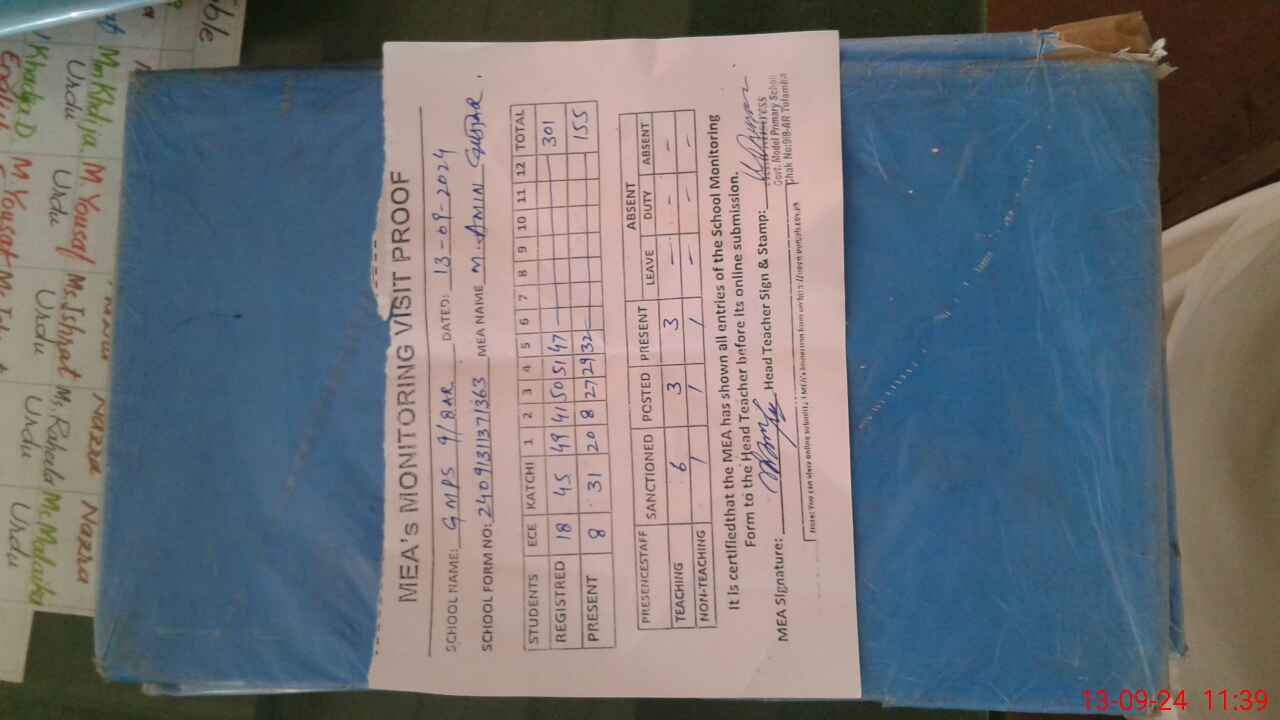 MEA's MONITORING VISIT PROOF
SCHOOL NAME: GMPS 9/8AR DATED: 13-09-2024
SCHOOL FORM NO: 2409131371363 MEA NAME M. AMIN
STUDENTS ECE KATCHI 1 2 3 4 5 6 7 8 9 10 11 12 TOTAL
REGISTRED 18 45 49 41 50 51 47 301
PRESENT 8 31 20 8 27 29 32 155
ABSENT
PRESENCESTAFF SANCTIONED POSTED PRESENT LEAVE DUTY ABSENT
TEACHING 6 3 3 - - -
NON-TEACHING 1 1 1 - - -
It is certifiedthat the MEA has shown all entries of the School Monitoring
Form to the Head Teacher before its online submission.
MEA Signature: Head Teacher Sign & Stamp:
Govt. Model Primary School
Chak No:9/8-AR Tulamba
Note: You can view online submitted MEA's
Urdu
M. Yousaf
Urdu
Urdu
Urdu
Urdu
Nazra
Nazra
13-09-24 11:39